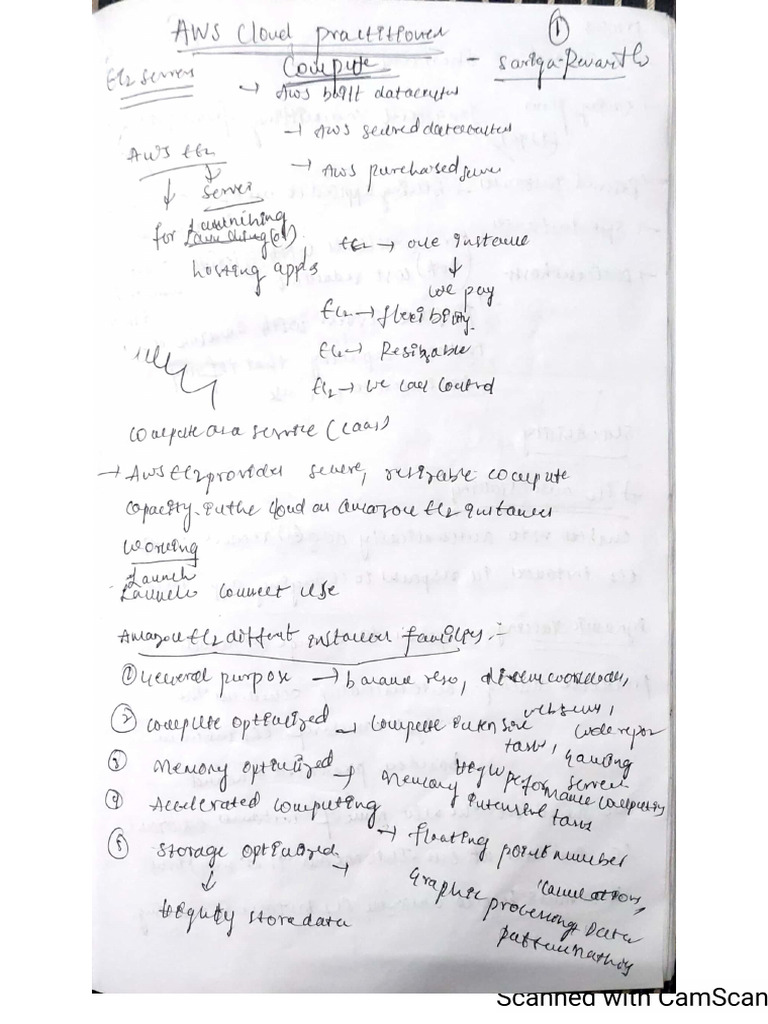 AWS Cloud practitioner
①
EC2 servers
Compute
- Sariga-Revarth
→ AWS built datacenters
→ AWS secured datacenters
AWS EC2
→ AWS purchased servers
Server
for Launching (or)
hosting apps
EC2 → one instance
we pay
EC2 → flexibility
EC2 → Resizable
EC2 → we can control
Compute as a service (CaaS)
→ AWS EC2 provides secure, resizable compute
capacity in the cloud as amazon EC2 instances
Working
Launch
Launch Connect Use
Amazon EC2 different instances families :-
① General purpose → balance reso, diverse workloads,
webservers,
code repor
② Compute optimized → Compute intensive
tasks, Gaming
servers
High performance computing
③ Memory optimized → Memory intensive tasks
④ Accelerated computing
→ floating point number
calculations,
Graphic processing, Data
pattern matching
⑤ Storage optimized →
store data
Scanned with CamScan